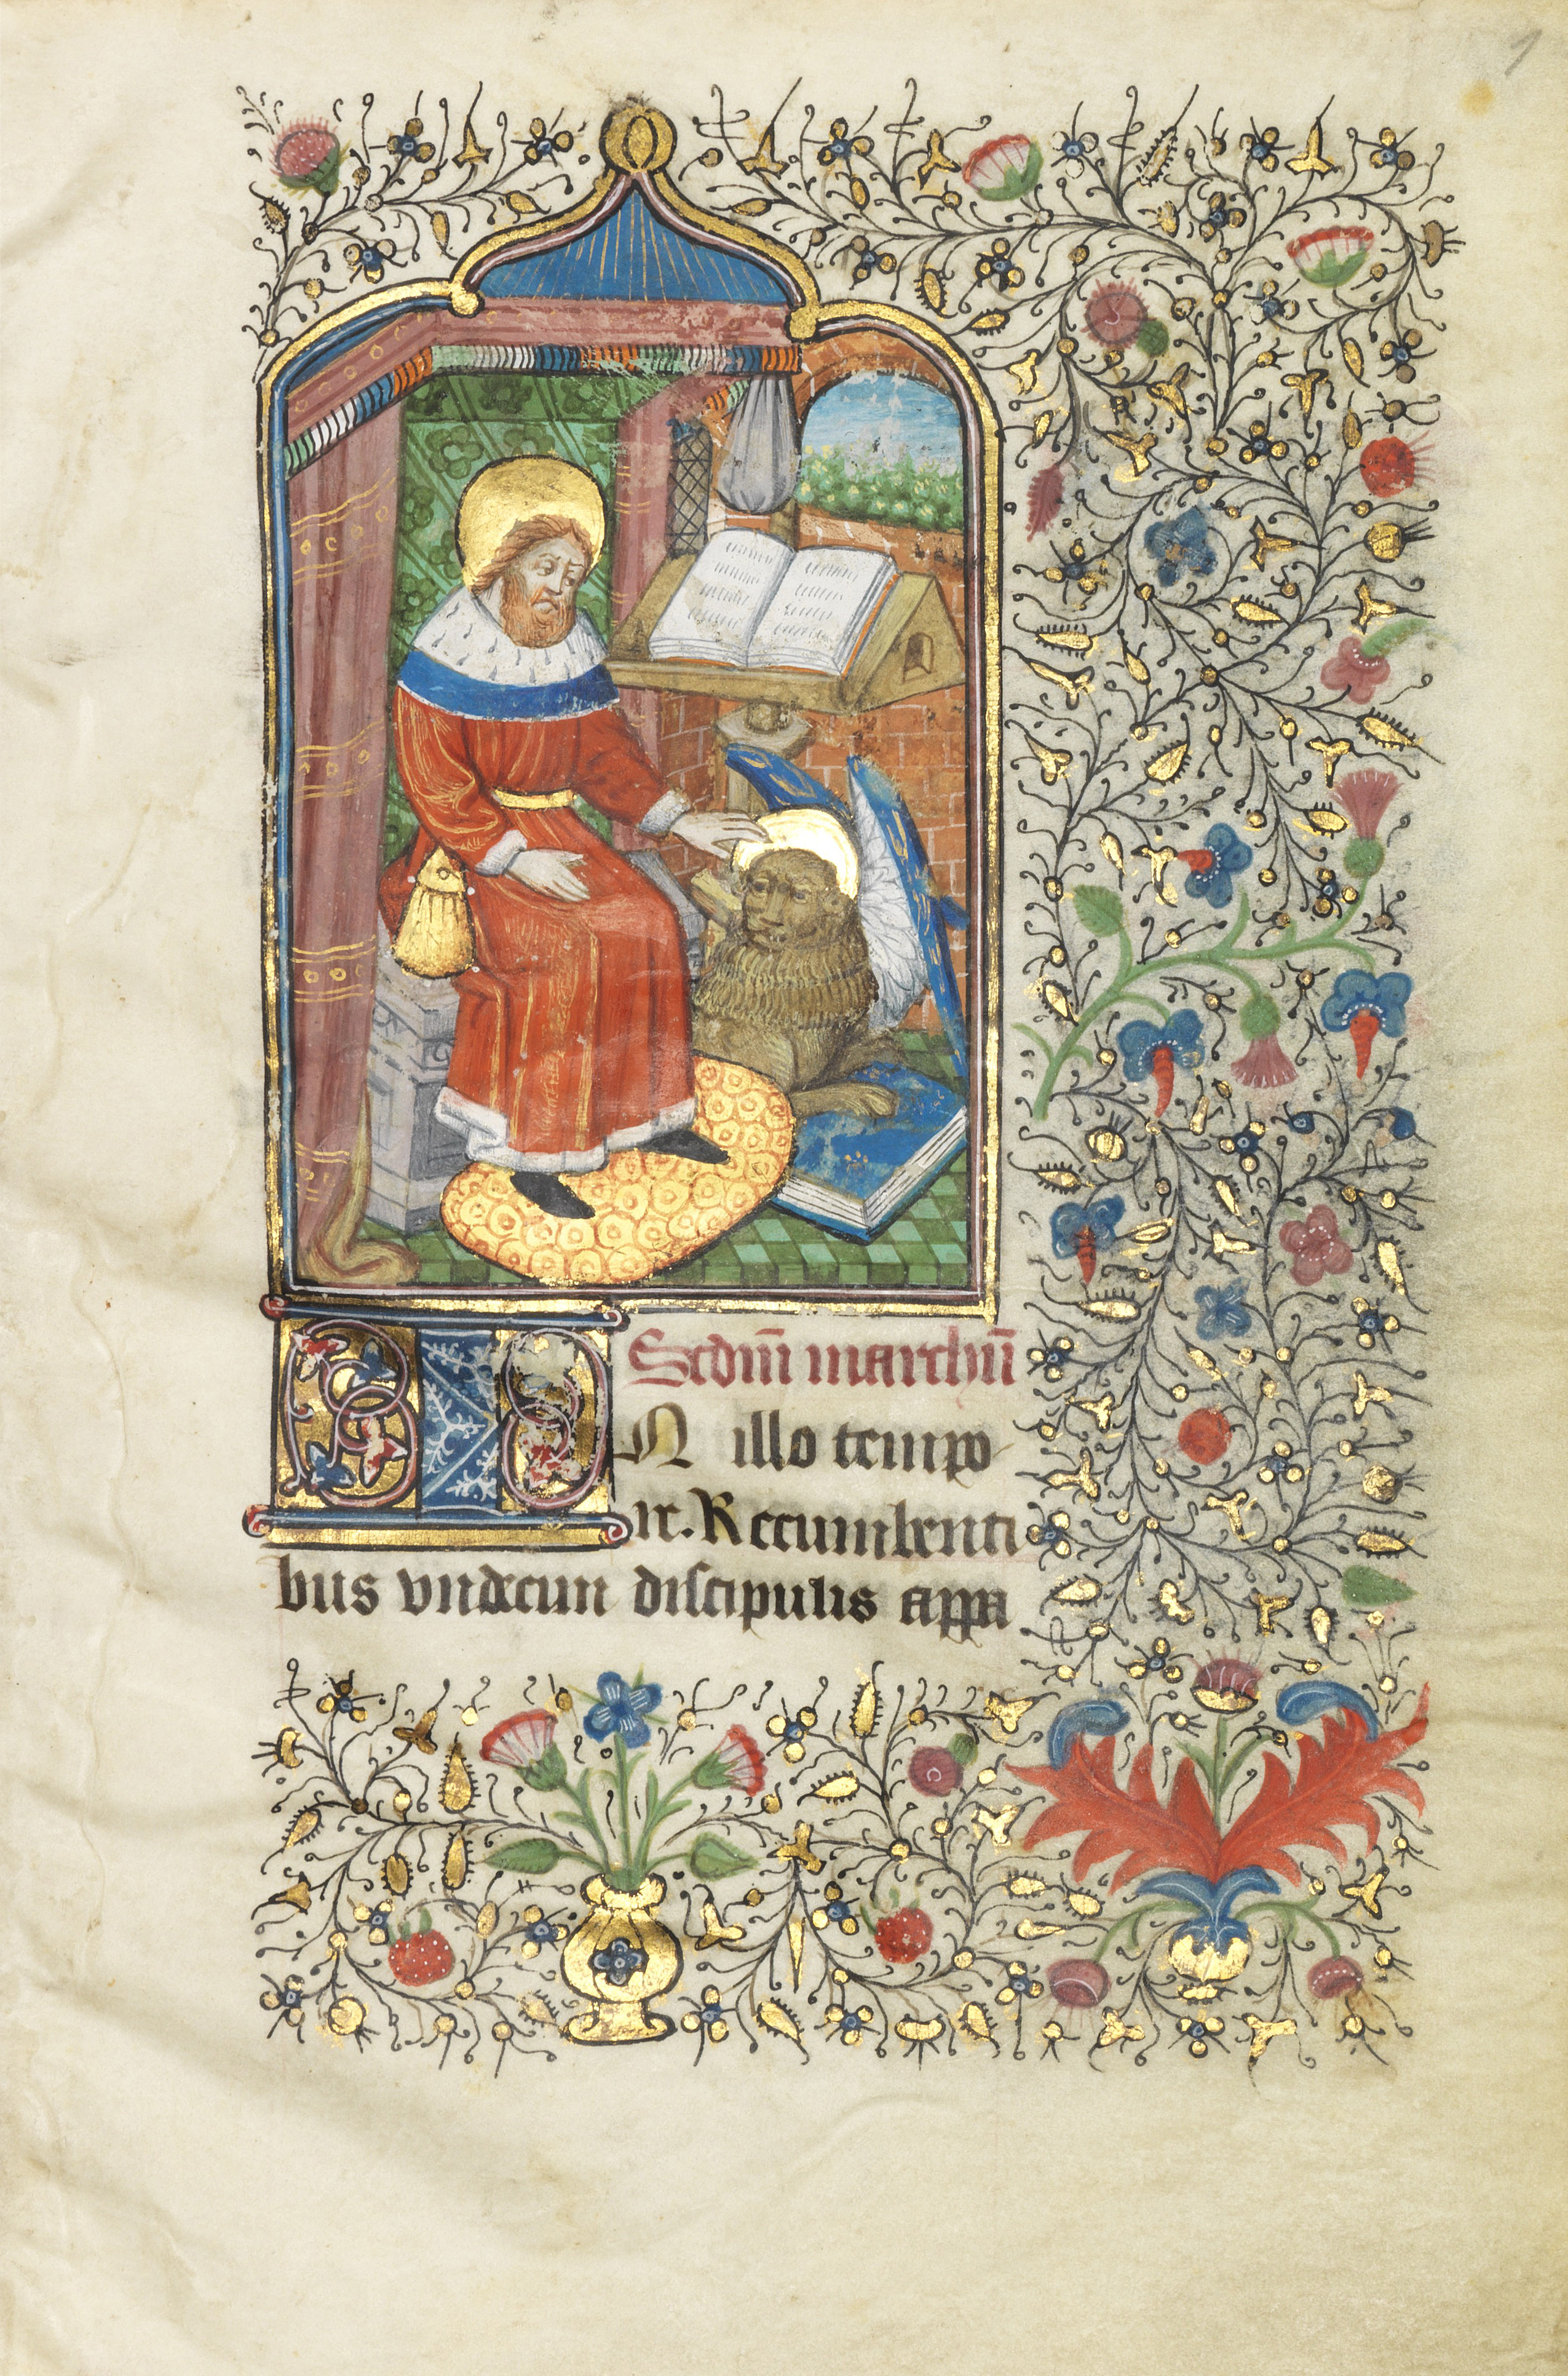 1
Scdm̄ marchū
IN illo tempo
re. Recumbenti
bus vndecim discipulis appa